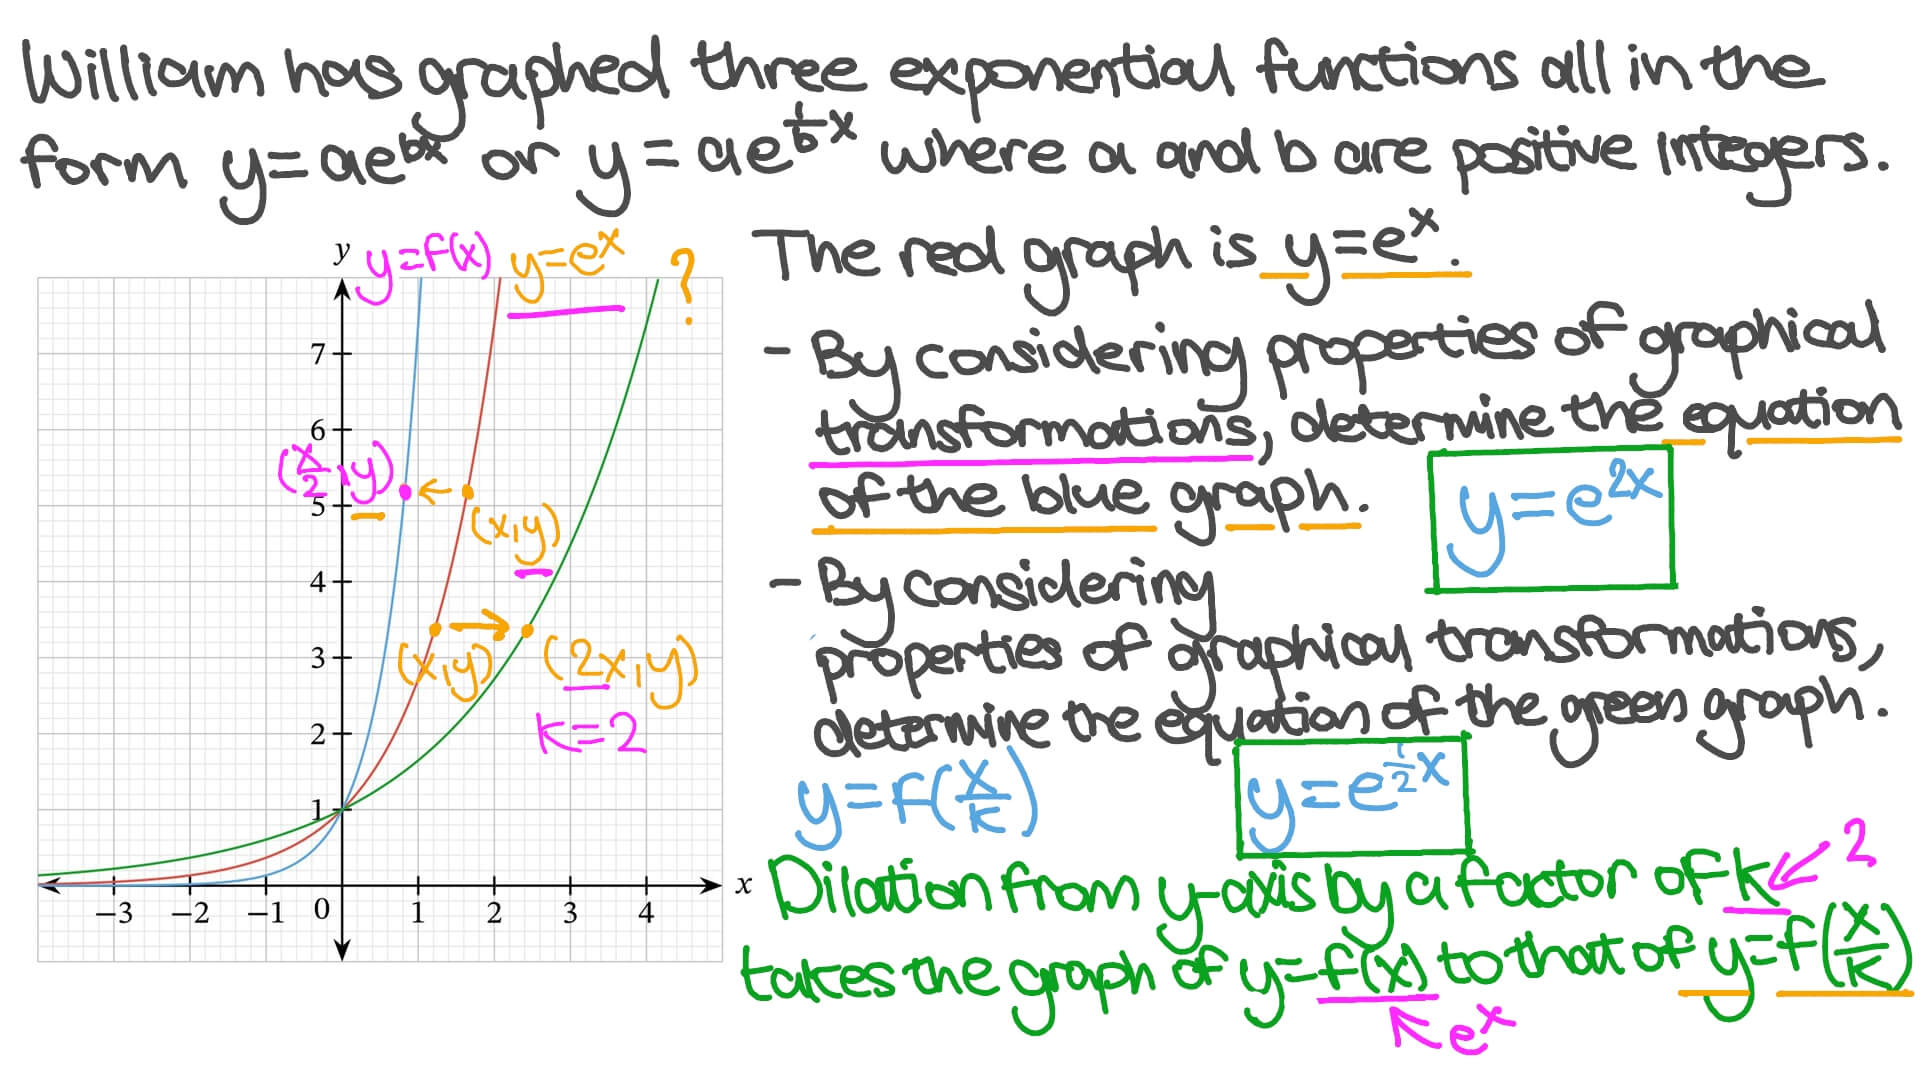 William has graphed three exponential functions all in the
form y=ae^{bx} or y=ae^{\frac{1}{b}x} where a and b are positive integers.
The red graph is y=e^x.
- By considering properties of graphical
transformations, determine the equation
of the blue graph.
y=e^{2x}
- By considering
properties of graphical transformations,
determine the equation of the green graph.
y=f(\frac{x}{k})
y=e^{\frac{1}{2}x}
Dilation from y-axis by a factor of k
2
takes the graph of y=f(x) to that of y=f(\frac{x}{k})
e^x
y
y=f(x)
y=e^x
?
7
6
(\frac{x}{2},y)
5
(x,y)
4
3
(x,y)
(2x,y)
k=2
2
1
−3 −2 −1 0 1 2 3 4
x